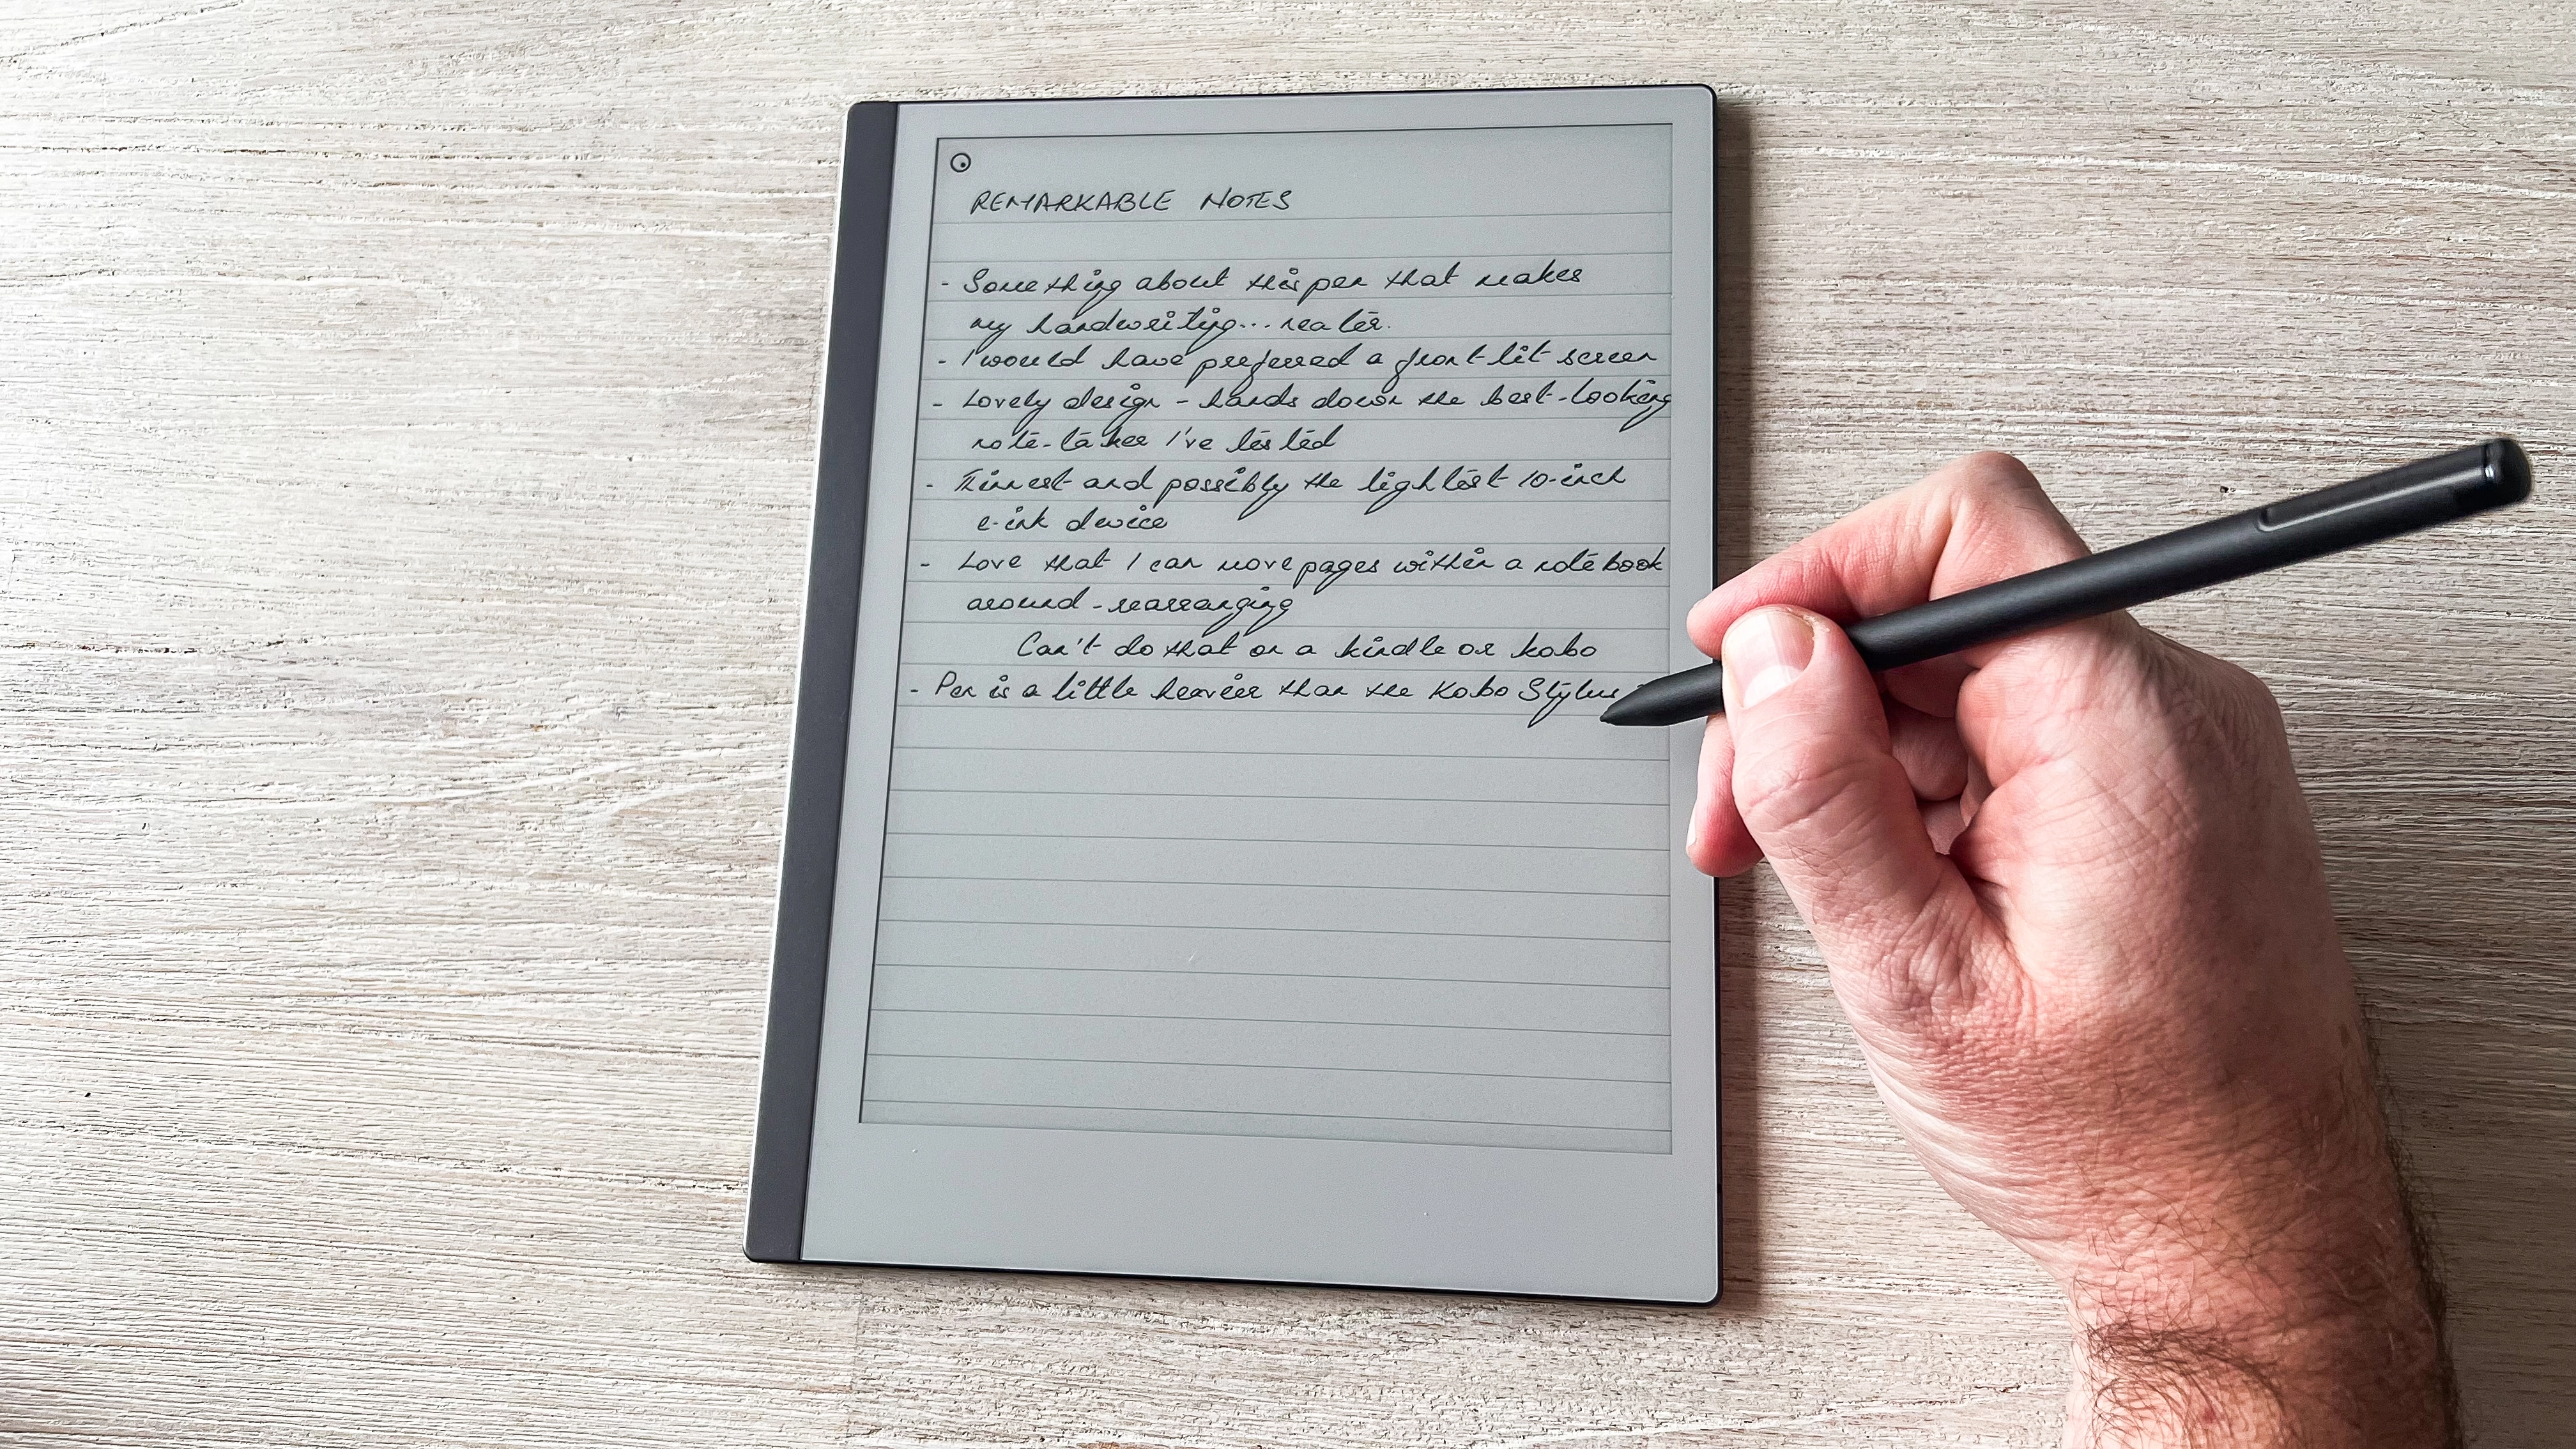 REMARKABLE NOTES
- Something about this pen that makes
my handwriting... neater.
- I would have preferred a front-lit screen
- Lovely design - hands down the best-looking
note-taker I've tested
- Thinnest and possibly the lightest 10-inch
e-ink device
- Love that I can move pages within a notebook
around - rearranging
Can't do that on a kindle or kobo
- Pen is a little heavier than the Kobo Stylus